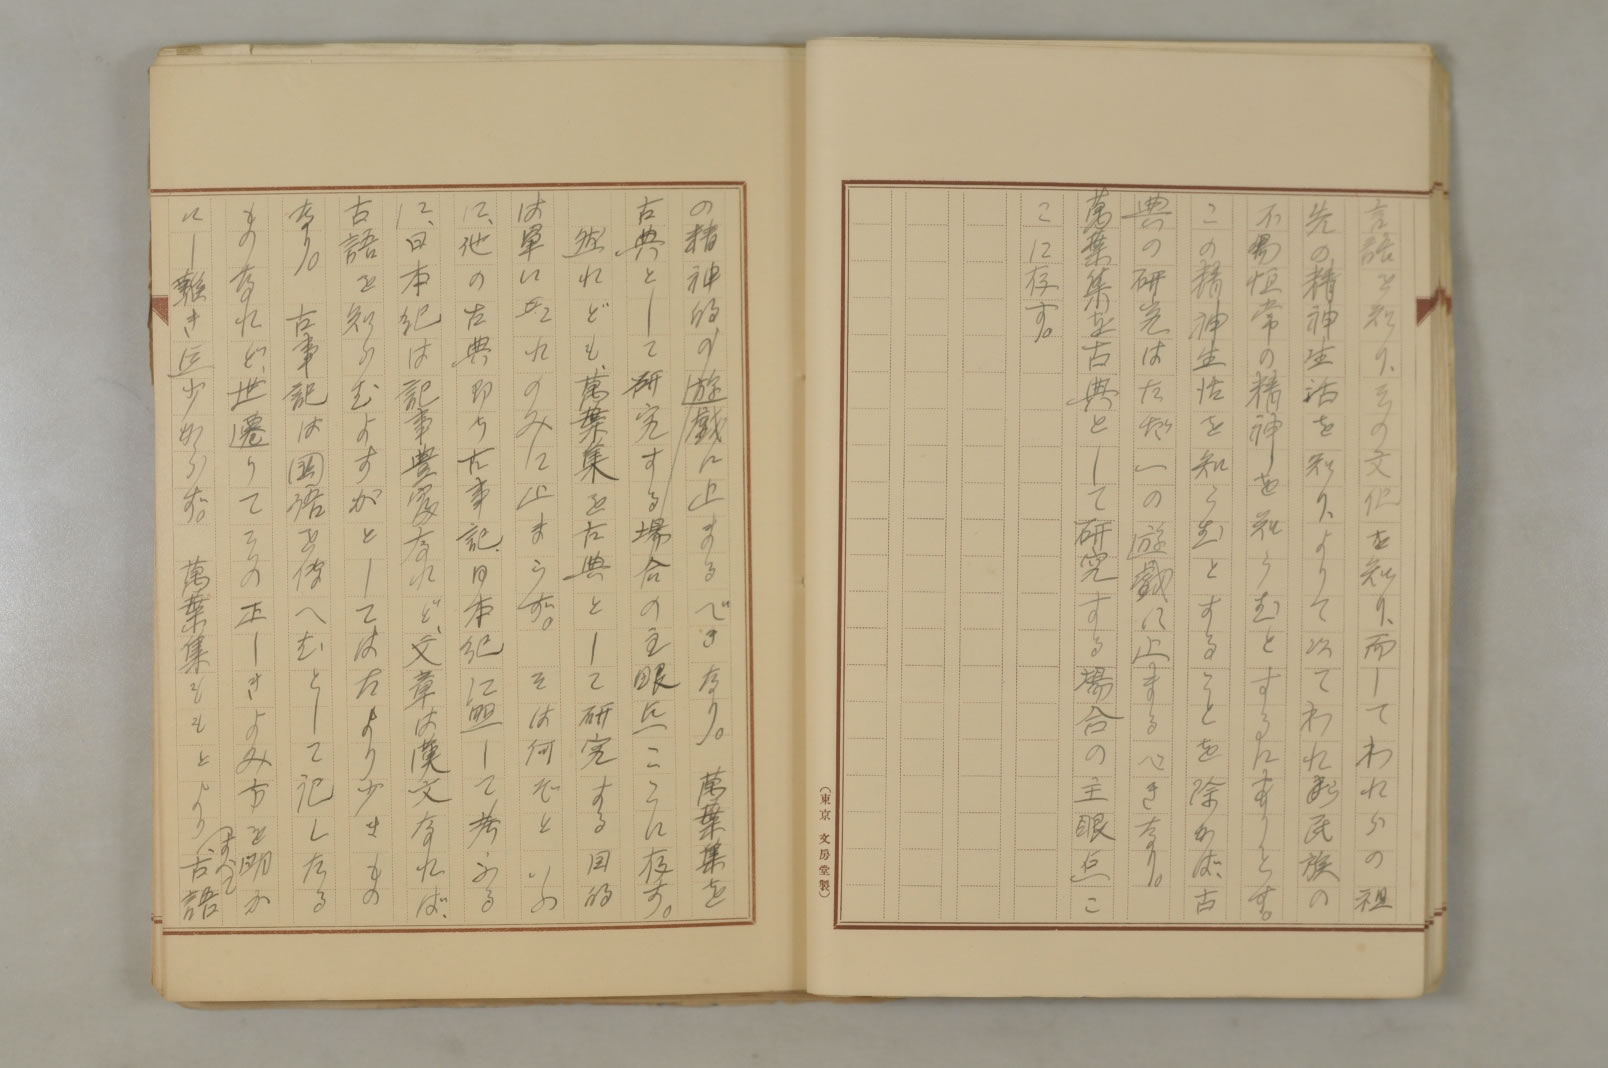 言語を知り、その文化を知り、而してわれらの祖
先の精神生活を知り、よりて以てわれら民族の
不易恒常の精神を知らむとするにありとす。
この精神生活を知らむとすることを除かば、古
典の研究はただ一の遊戯に止まるべきなり。
萬葉集を古典として研究する場合の主眼点こ
こに存す。
(東京 文房堂製)
の精神的の遊戯に止まるべきなり。萬葉集を
古典として研究する場合の主眼点ここに存す。
然れども、萬葉集を古典として研究する目的
は単にこれのみに止まらず。そは何ぞといふ
に、他の古典即ち古事記、日本紀に照して考ふる
に、日本紀は記事豊富なれど、文章は漢文なれば、
古語を知らむよすがとしてはたより少きもの
なり。古事記は国語を伝へむとして記したる
ものなれど、世遷りてその正しきよみ方を明か
にし難き点少からず。萬葉集ももとよりすべて古語